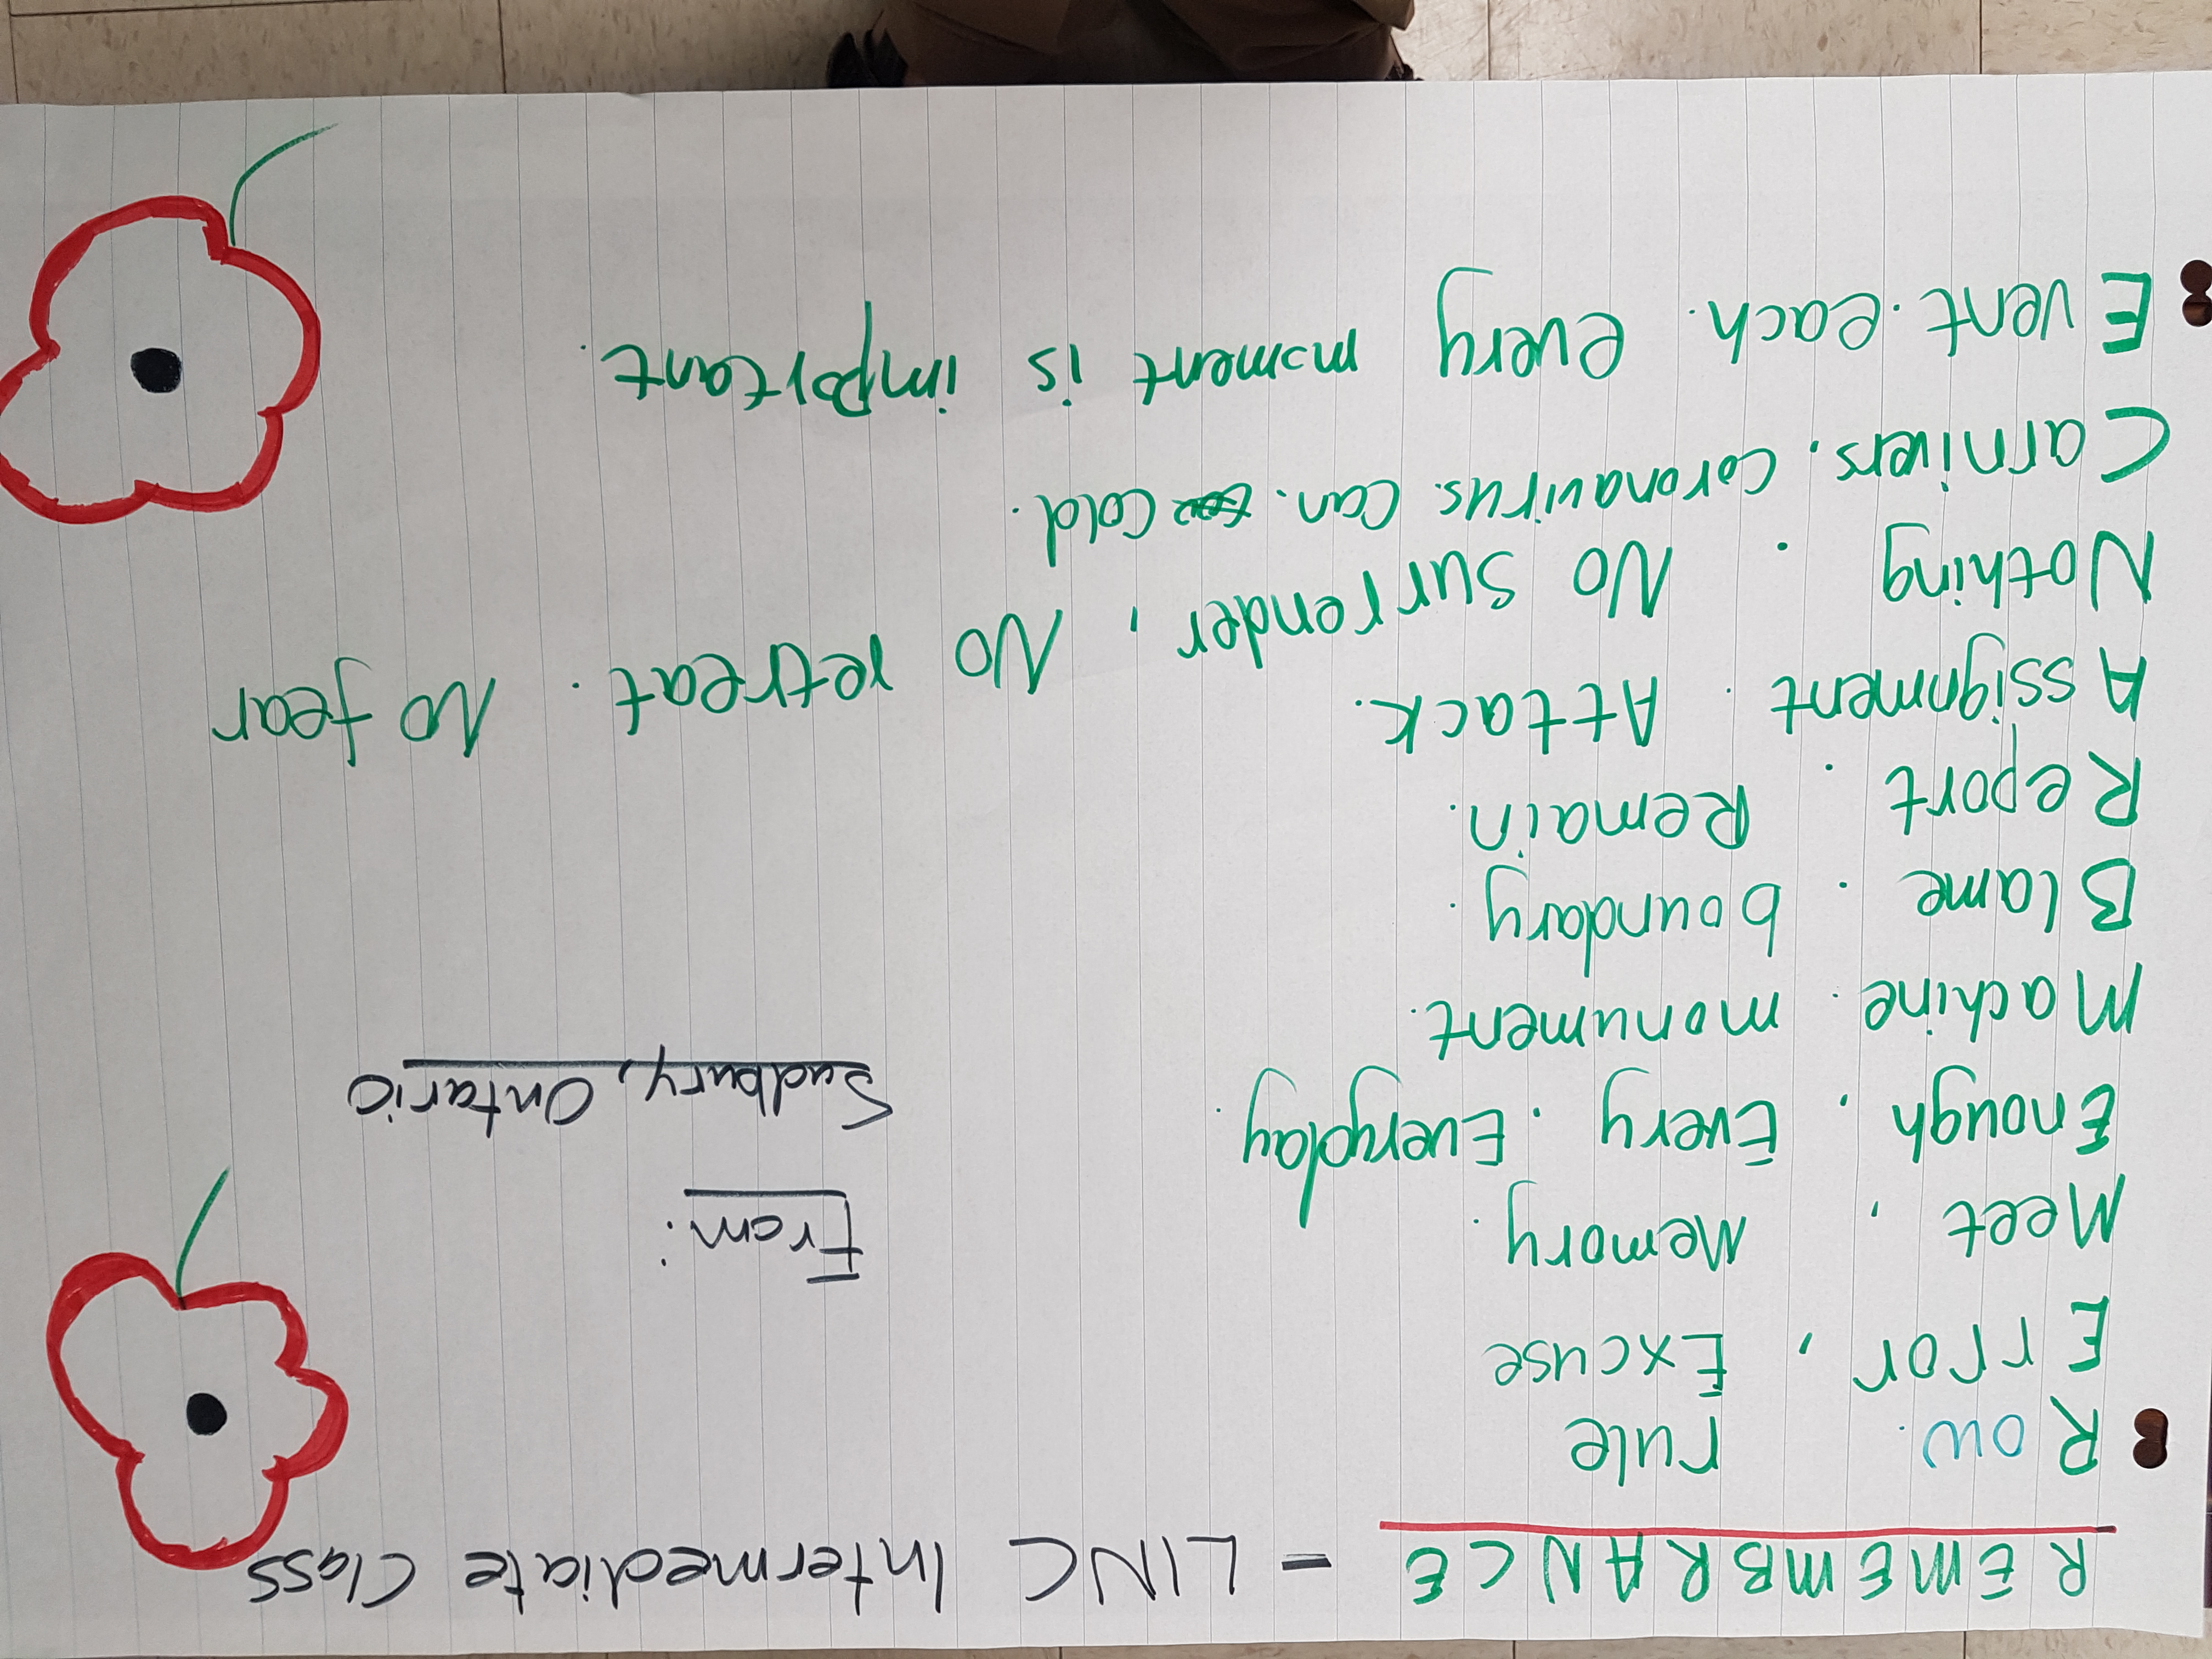 REMEMBRANCE - LINC Intermediate Class
Row. rule
Error, Excuse
Meet, Memory.
Enough, Every. Everyday.
Machine. monument.
Blame. boundary.
Report. Remain.
Assignment. Attack.
Nothing. No surrender, No retreat. No fear
Carnivers. Coronavirus. Can. Cold.
Event. each. every moment is important.
From:
Sudbury, Ontario